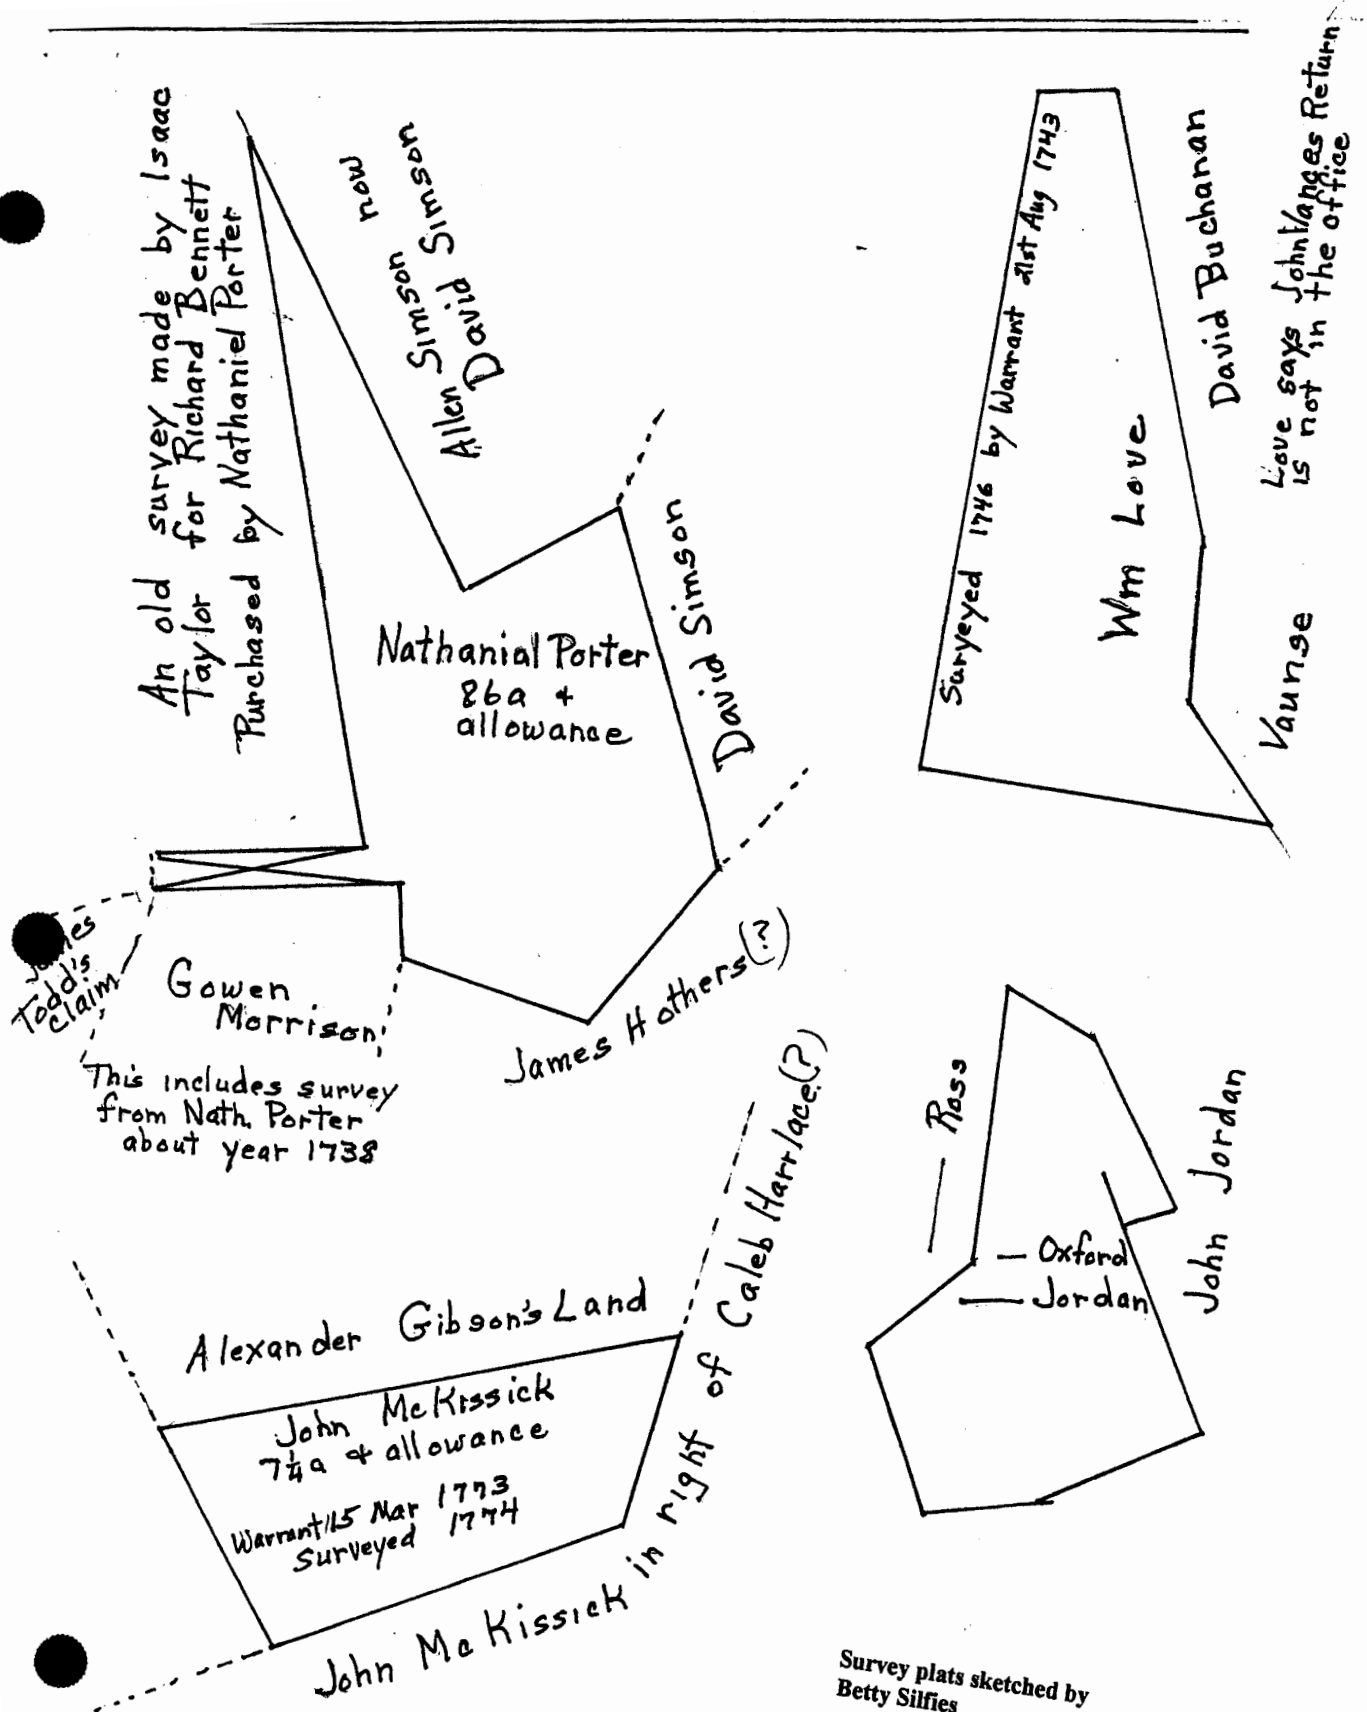 An old survey made by Isaac
Taylor for Richard Bennett
Purchased by Nathaniel Porter
Allen Simson now
David Simson
Nathanial Porter
86a &
allowance
David Simson
James Hothers(?)
Todd's
claim
Gowen
Morrison
This includes survey
from Nath. Porter
about year 1738
Surveyed 1746 by Warrant 21st Aug 1743
Wm Love
David Buchanan
Vaunse
Love says John Vances Return
is not in the office
Ross
Oxford
Jordan
John Jordan
Alexander Gibson's Land
John McKissick
7¼a & allowance
Warrant 15 Mar 1773
Surveyed 1774
John McKissick in right of Caleb Harrlace(?)
Survey plats sketched by
Betty Silfies